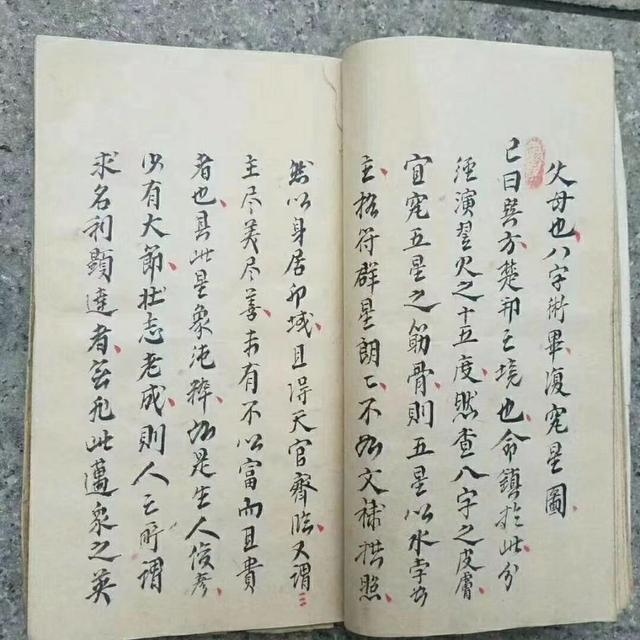 父母也八字術畢复宪星圖
巳日巽方楚邦之境也命鎮於此分
經演翌火之十五度然查八字之皮膚
宜宪五星之筋骨則五星以水孛为
主招符群星朗々不如文禄拱照
然以身居卯域且得天官齊临又謂
主尽美尽善未有不以富而且貴
者也具此星象沌粹如是生人俊秀
少有大節壮志老成則人之所謂
求名利顯達者舍此邁衆之英